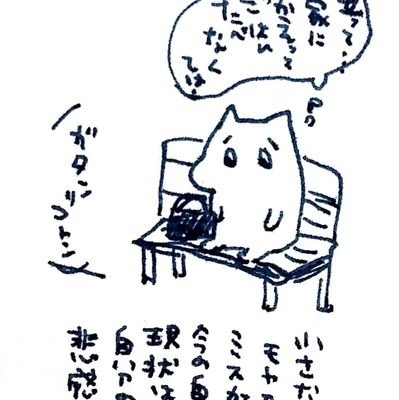 立って…
家に
かえって
ごはん
たべ
なく
ては…
ガタンゴトン
小さな
モヤ
ミスが
今の自
現状は
自分の